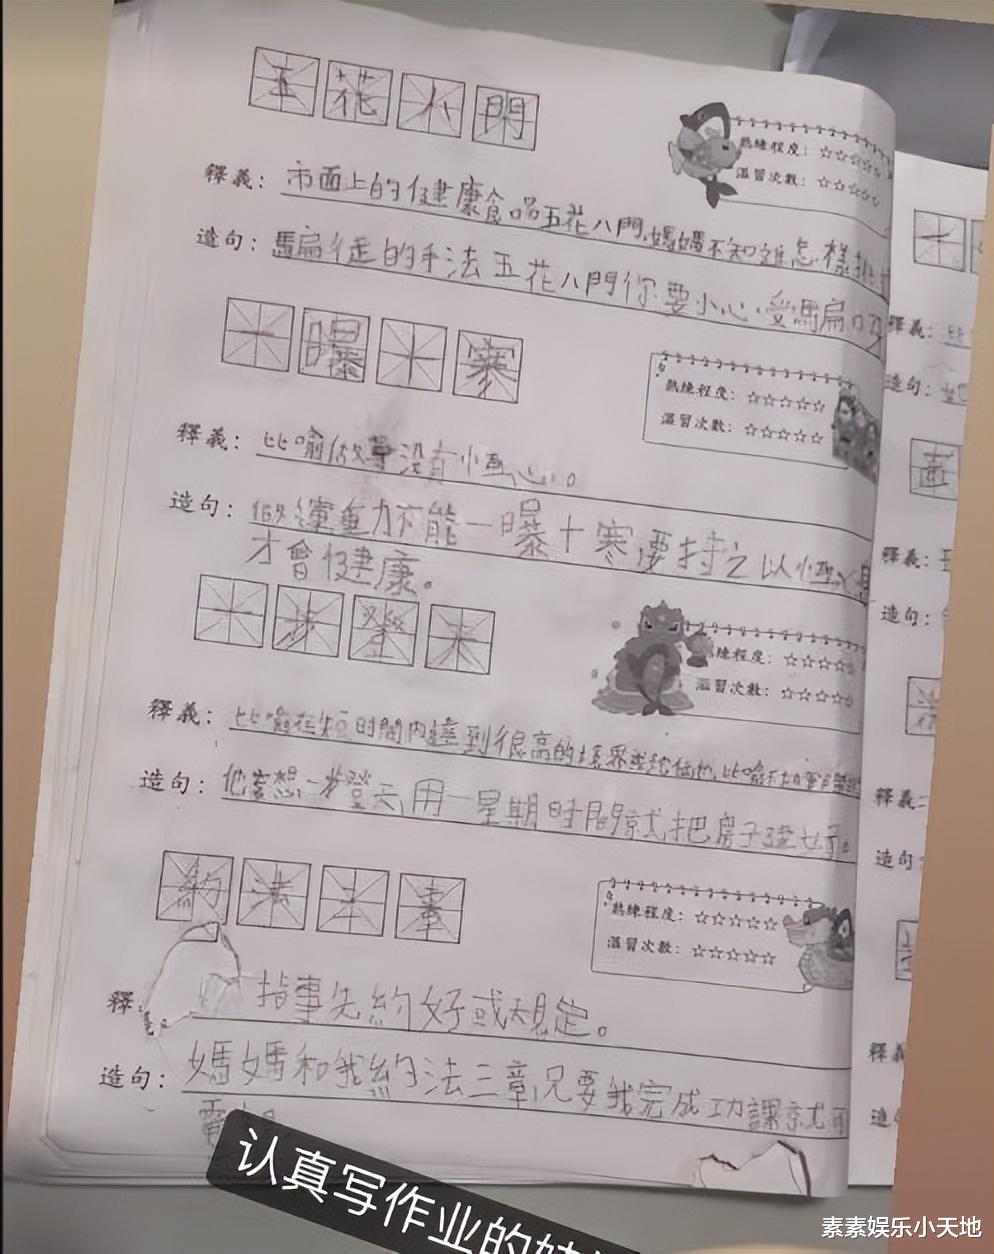 五花八門
熟練程度：☆☆☆☆☆
溫習次數：☆☆☆☆☆
釋義：市面上的健康食品五花八門,媽媽不知誰怎樣
造句：騙徒的手法五花八門你要小心受騙呀
一曝十寒
熟練程度：☆☆☆☆☆
溫習次數：☆☆☆☆☆
釋義：比喻做事沒有恆心。
造句：做運動不能一曝十寒,要持之以恆
才會健康。
一步登天
熟練程度：☆☆☆☆☆
溫習次數：☆☆☆☆☆
釋義：比喻在短時間內達到很高的境界或地位
造句：他妄想一步登天,用一星期時間就把房子建好。
約法三章
熟練程度：☆☆☆☆☆
溫習次數：☆☆☆☆☆
釋 指事先約好或規定。
造句：媽媽和我約法三章,只要我完成功課就可
釋義：比
造句：
釋義：
造句：
釋義：
造句
釋義
认真写作业的
素素娱乐小天地